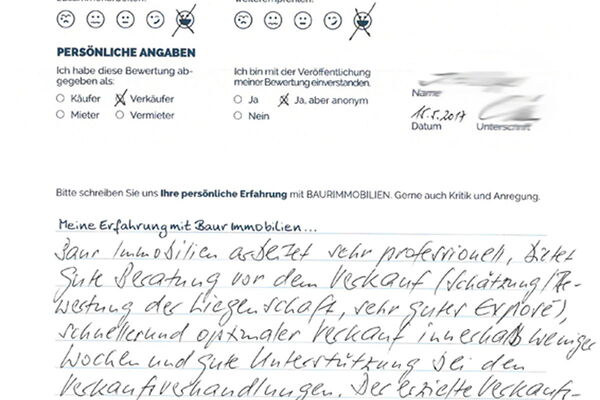 weiterempfehlen:
PERSÖNLICHE ANGABEN
Ich habe diese Bewertung ab-
gegeben als:
Käufer Verkäufer
Mieter Vermieter
Ich bin mit der Veröffentlichung
meiner Bewertung einverstanden.
Ja Ja, aber anonym
Nein
Name
15.5.2017
Datum Unterschrift
Bitte schreiben Sie uns Ihre persönliche Erfahrung mit BAURIMMOBILIEN. Gerne auch Kritik und Anregung.
Meine Erfahrung mit Baur Immobilien...
Baur Immobilien arbeitet sehr professionell, bietet
gute Beratung vor dem Verkauf (Schätzung/Be-
wertung der Liegenschaft, sehr gutes Exposé),
schneller und optimaler Verkauf innerhalb weniger
Wochen und gute Unterstützung bei den
Verkaufsverhandlungen. Der erzielte Verkaufs-